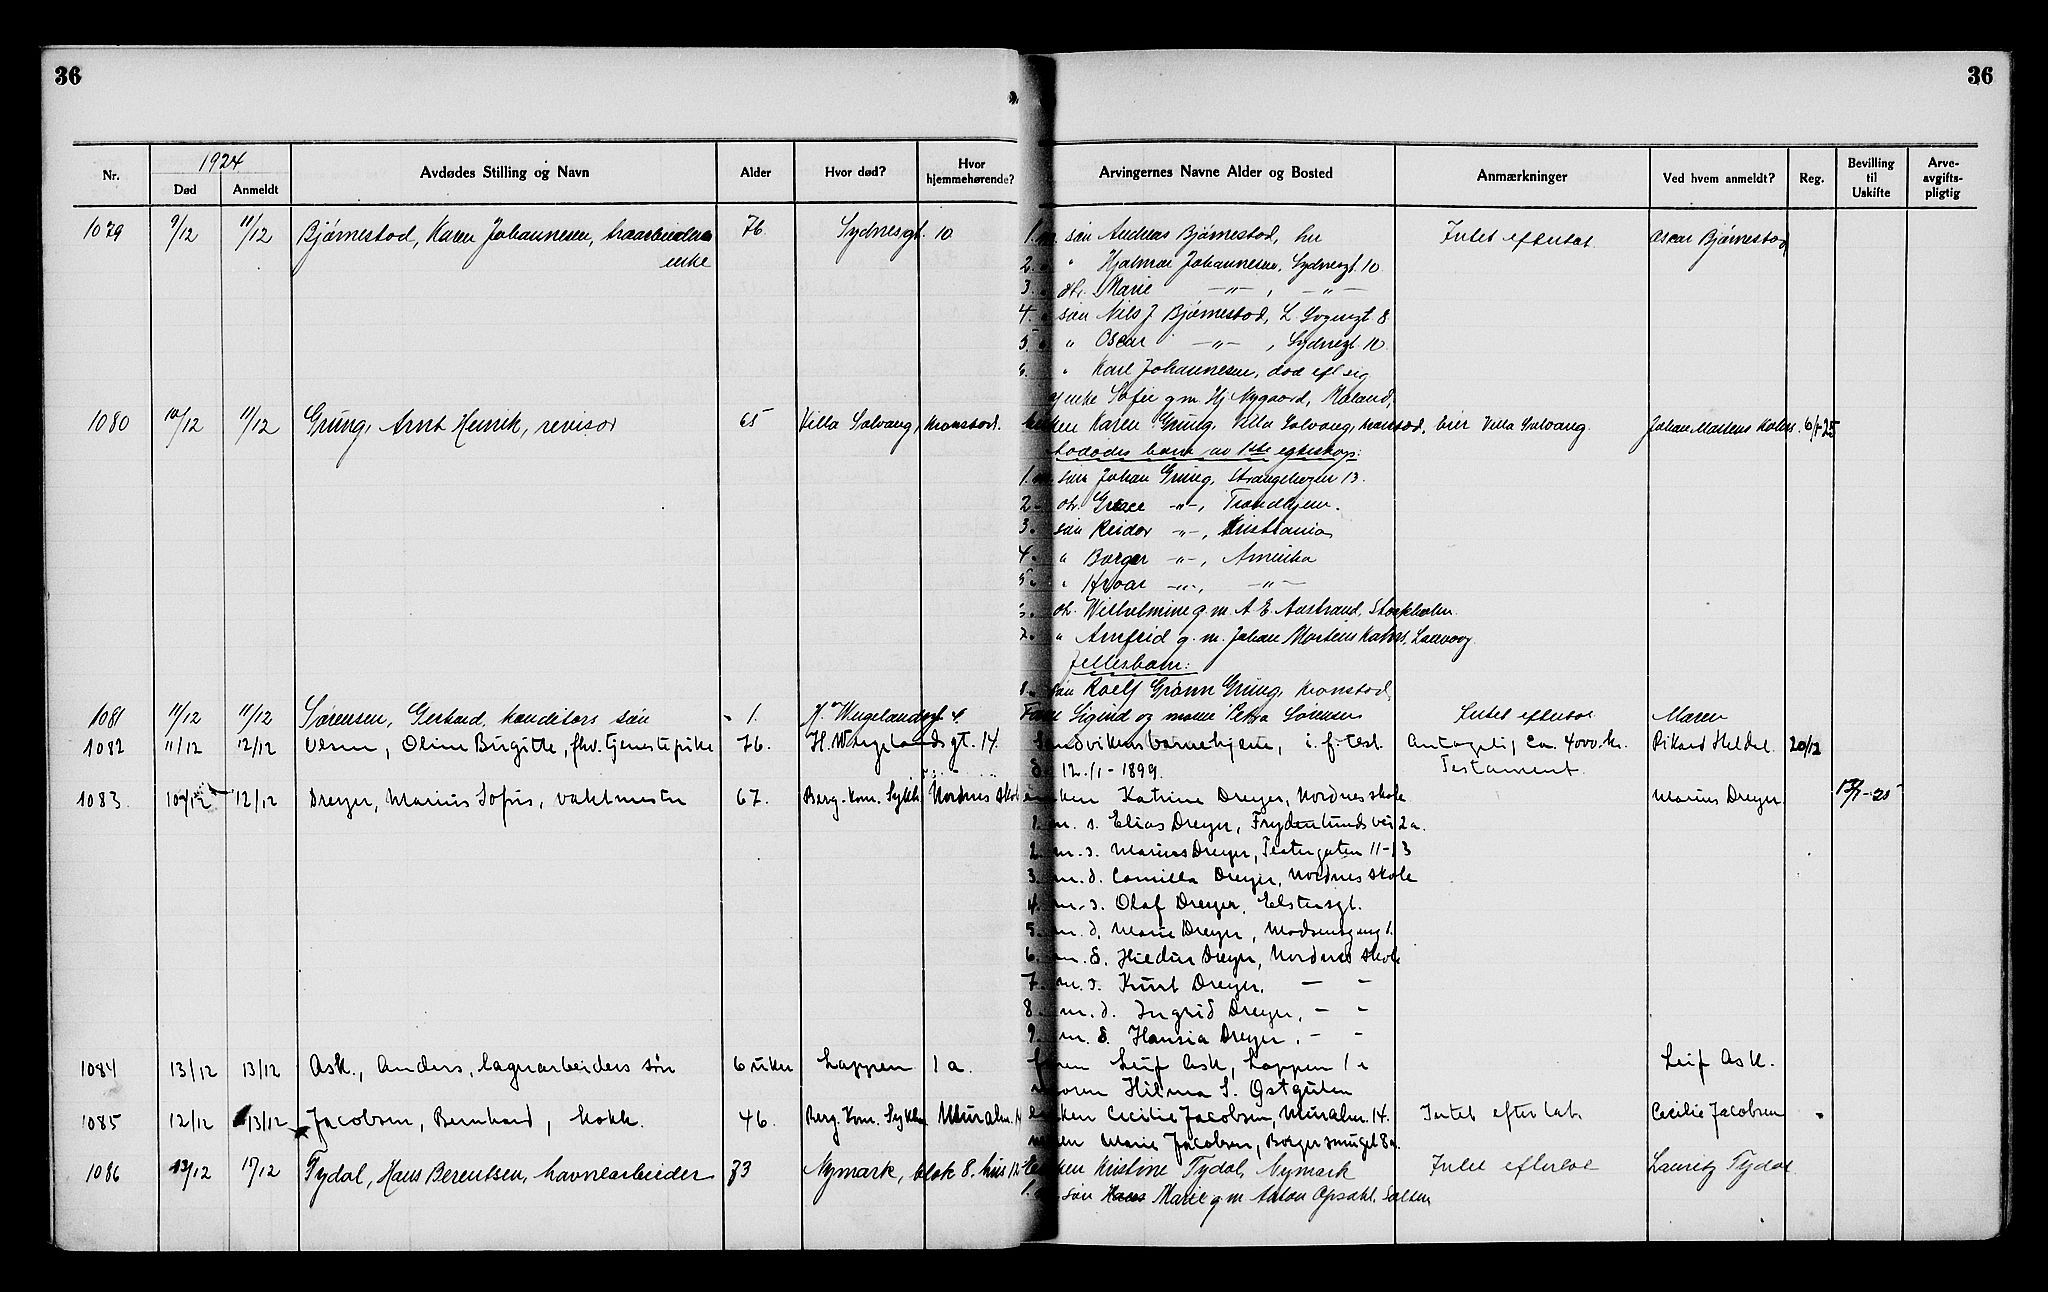 36
36
Nr.
1924
Død
Anmeldt
Avdødes Stilling og Navn
Alder
Hvor død?
Hvor hjemmehørende?
Arvingernes Navne Alder og Bosted
Anmærkninger
Ved hvem anmeldt?
Reg.
Bevilling til Uskifte
Arve-avgifts-pligtig
1079 9/12 11/12 Bjørnestad, Karen Johannesen, 76. Sydnesgt. 10 1. m. søn Andreas Bjørnestad, her Intet efterlat Oscar Bjørnestad
enke 2. " " Hjalmar Johannesen, Sydnesgt. 10
3. " dtr. Marie —"—, —"—
4. " søn Nils J Bjørnestad, 8
5. " " Oscar —"—, Sydnesgt. 10.
6. " Karl Johannesen, død efl sig
enke Sofie g m. Hj. Nygaard,
1080 10/12 11/12 Grung, Arnt Henrik, revisor 65 Villa Solvang, Kronstad. Enken Karen Grung, Villa Solvang, Kronstad, eier Villa Solvang. Johan Martens 6/1-25
avdødes barn av 1ste egteskap:
1. m. søn Johan Grung, Strangehagen 13.
2 - dtr. Grace -"-, Trondhjem.
3. søn Reidar -"-, Kristiania
4. " Borger -"-, Amerika
5. " Hroar -"-, —"—
6. dtr. Wilhelmine g. m. A. E. Stockholm.
7. " Arnfrid g. m. Johan Martens
Fellesbarn:
1. søn Rolf Grønn Grung, Kronstad
1081 11/12 11/12 Sørensen, Gerhard, konditors søn 1. H. Wergelandsgt 4. Faren Sigurd og moren Petra Sørensen Intet efterlat Moren
1082 11/12 12/12 Olsen, Oline Birgitte, fhv. tjenestepike 76. H. Wergelandsgt. 14. Sandvikens barnehjem, i. f. test. Antagelig ca. 4000 kr. Rikard Heldal 20/12
12./1-1899. Testament.
1083. 10/12 12/12 Dreyer, Marius Sofus, vaktmester 67. Berg. kom. Sykh. Nordnes skole enken Katrine Dreyer, Nordnes skole Marius Dreyer.
1. m. s. Elias Dreyer, Frydenlundsvei 2a.
2. m. s. Marius Dreyer, Teatergaten 11-13
3. m. d. Camilla Dreyer, Nordnes skole
4. m. s. Olaf Dreyer, Elstersgt.
5. m. d. Marie Dreyer, 1.
6. m. d. Dreyer, Nordnes skole
7. m. s. Kurt Dreyer, — -
8. m. d. Ingrid Dreyer, - -
9. m. d. Hansia Dreyer, - -
1084 13/12 13/12 Ask, Anders, lagerarbeiders søn 6 uker Lappen 1 a. faren Leif Ask, Lappen 1 a Leif Ask.
moren Hilma S. Østgulen
1085 12/12 13/12 Jacobsen, Bernhard, kokk. 46. Berg. Kom. Sykh. Muralm. 14 enken Cecilie Jacobsen, Muralm. 14. Intet efterlat. Cecilie Jacobsen
moren Marie Jacobsen, Borgersmuget 8a.
1086 13/12 17/12 Tydal, Hans Berentsen, havnearbeider 73 Nymark, blok 8. hus 12 Enken Kristine Tydal, Nymark Intet efterlat Lauritz Tydal
1. Marie g m Anton Opsahl, Salten